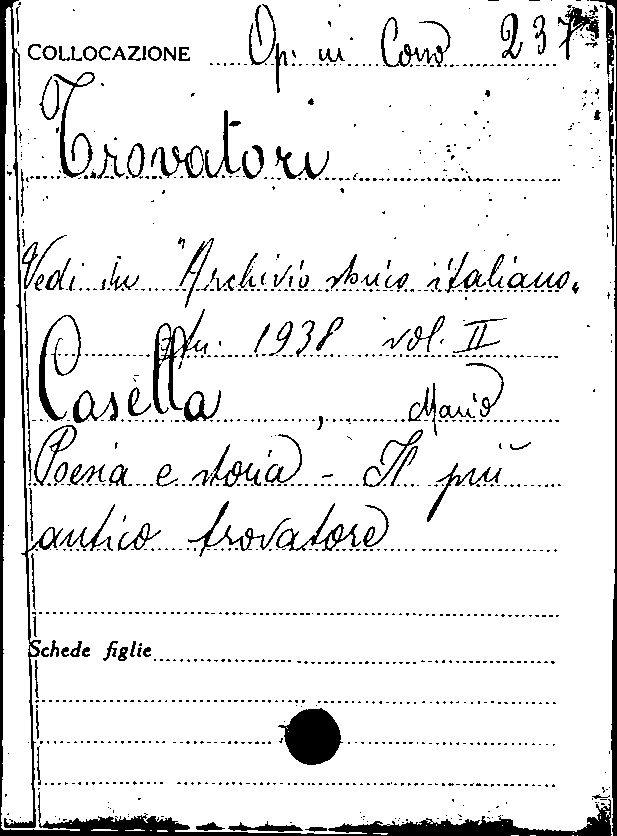 COLLOCAZIONE Op. in Corso 237
Trovatori
Vedi in "Archivio storico italiano"
An. 1938 vol. II
Casella, Mario
Poesia e storia - Il più
antico trovatore
Schede figlie